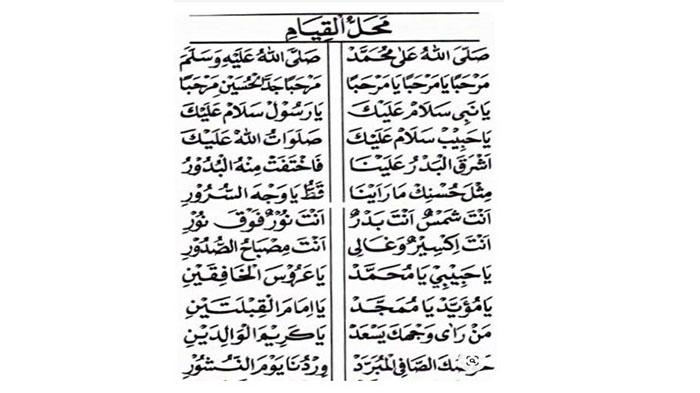 مَحَلُّ الْقِيَامِ
صَلَّى اللهُ عَلَى مُحَمَّدْ صَلَّى اللهُ عَلَيْهِ وَسَلَّمَ
مَرْحَبًا يَا مَرْحَبًا يَا مَرْحَبًا مَرْحَبًا جَدَّ الْحُسَيْنِ مَرْحَبًا
يَا نَبِى سَلَامْ عَلَيْكَ يَا رَسُوْلْ سَلَامْ عَلَيْكَ
يَا حَبِيْبْ سَلَامْ عَلَيْكَ صَلَوَاتُ اللهْ عَلَيْكَ
اَشْرَقَ الْبَدْرُ عَلَيْنَا فَاخْتَفَتْ مِنْهُ الْبُدُوْرُ
مِثْلَ حُسْنِكَ مَا رَاَيْنَا قَطُّ يَا وَجْهَ السُّرُوْرِ
اَنْتَ شَمْسٌ اَنْتَ بَدْرٌ اَنْتَ نُوْرٌ فَوْقَ نُوْرِ
اَنْتَ اِكْسِيْرٌ وَغَالِى اَنْتَ مِصْبَاحُ الصُّدُوْرِ
يَا حَبِيْبِيْ يَا مُحَمَّدْ يَا عَرُوْسَ الْخَافِقَيْنِ
يَا مُؤَيَّدْ يَا مُمَجَّدْ يَا اِمَامَ الْقِبْلَتَيْنِ
مَنْ رَاَى وَجْهَكَ يَسْعَدْ يَا كَرِيْمَ الْوَالِدَيْنِ
الصَّافِى الْمُبَرَّدْ وِرْدُنَا يَوْمَ النُّشُوْرِ